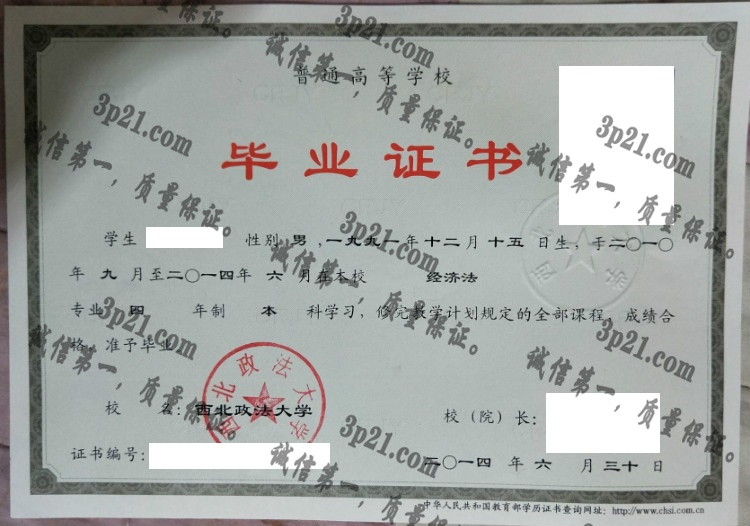 普通高等学校
毕业证书
学生 性别 男 ,一九九一年 十二月 十五 日生,于二〇一〇
年 九 月至二〇一四年 六 月在本校 经济法
专业 四 年制 本 科学习,修完教学计划规定的全部课程,成绩合
格,准予毕业。
校 名: 西北政法大学
校(院)长:
证书编号:
二〇一四 年 六 月 三十 日
中华人民共和国教育部学历证书查询网址: http://www.chsi.com.cn
西北政法大学
3p21.com
诚信第一,质量保证。
3p21.com
诚信第一,质量保证。
3p21.com
诚信第一,质量保证。
3p21.com
诚信第一,质量保证。
3p21.com
诚信第一,质量保证。
3p21.com
诚信第一,质量保证。
3p21.com
诚信第一,质量保证。
3p21.com
诚信第一,质量保证。